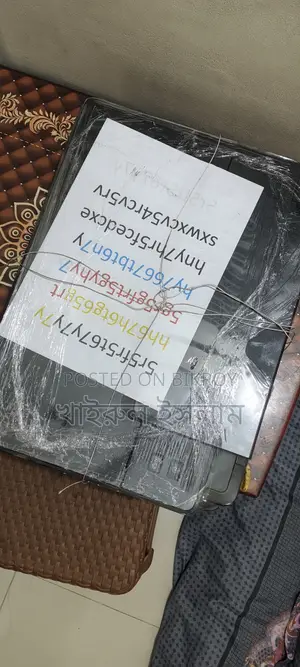 5r5fr5t67y7y7v
hh67h6tg65grt
5gt5gfrt5gyhy7
hy7667tbt6n7y
hny7hr5fcedcxe
sxwxcv54rcv5rv
POSTED ON BIKROY
খাইরুল ইসলাম